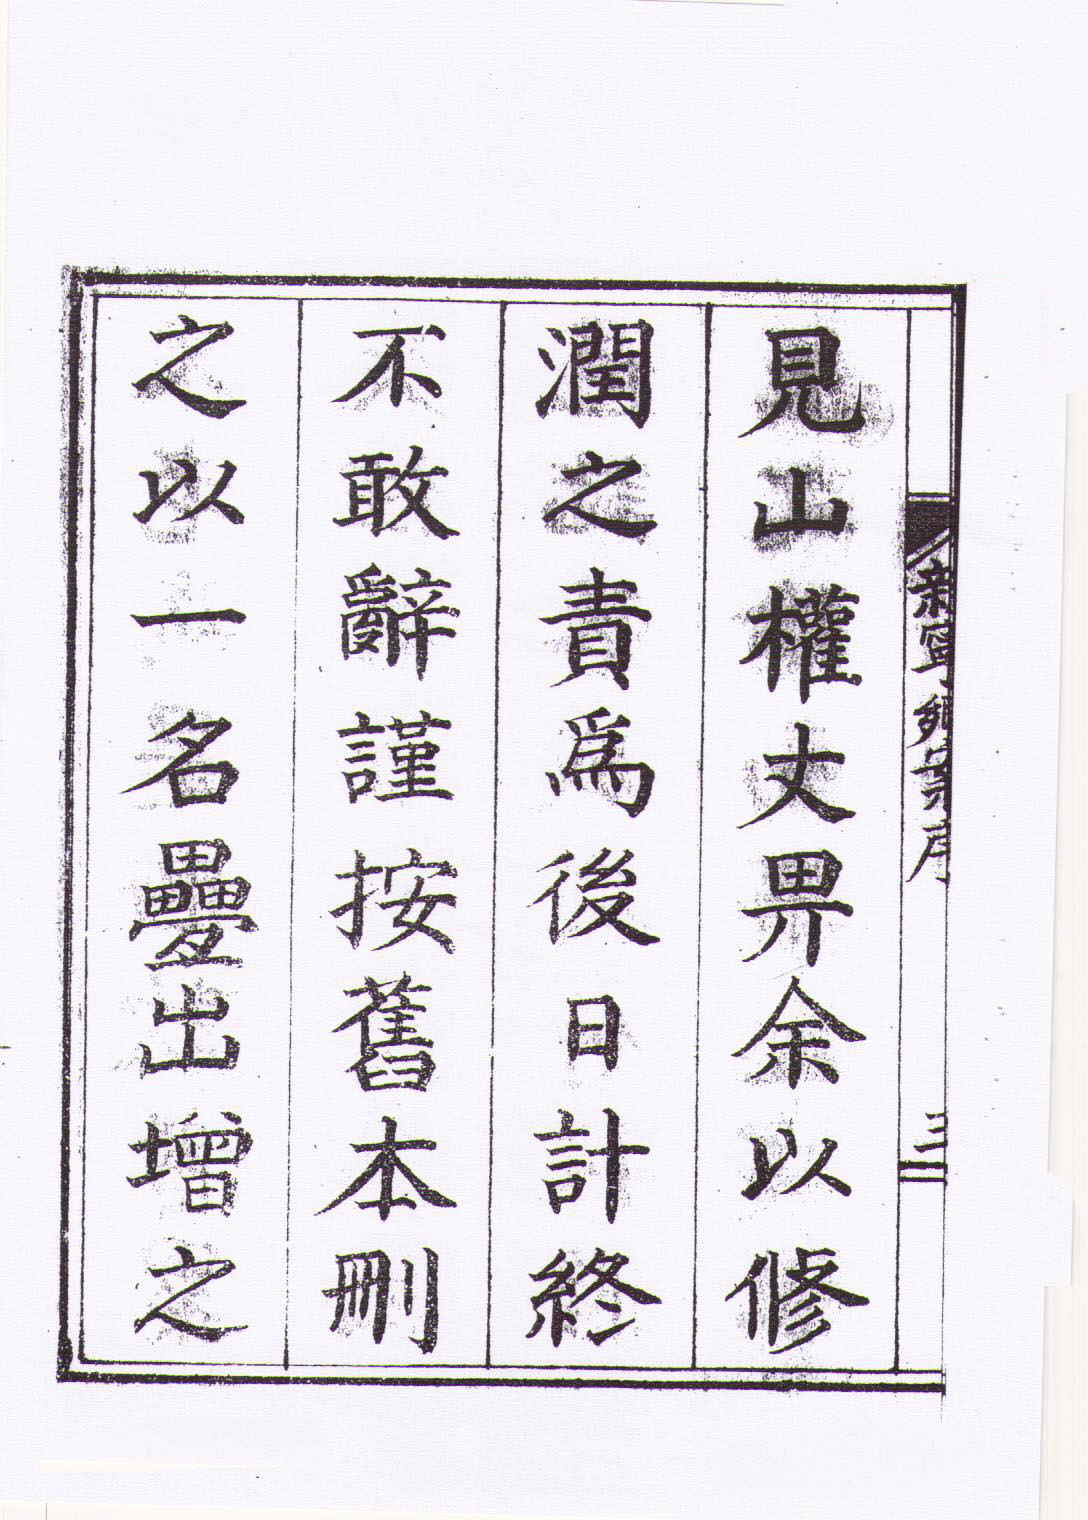 見山權丈畀余以修
潤之責爲後日計終
不敢辭謹按舊本刪
之以一名疊出增之
新寧
序
三